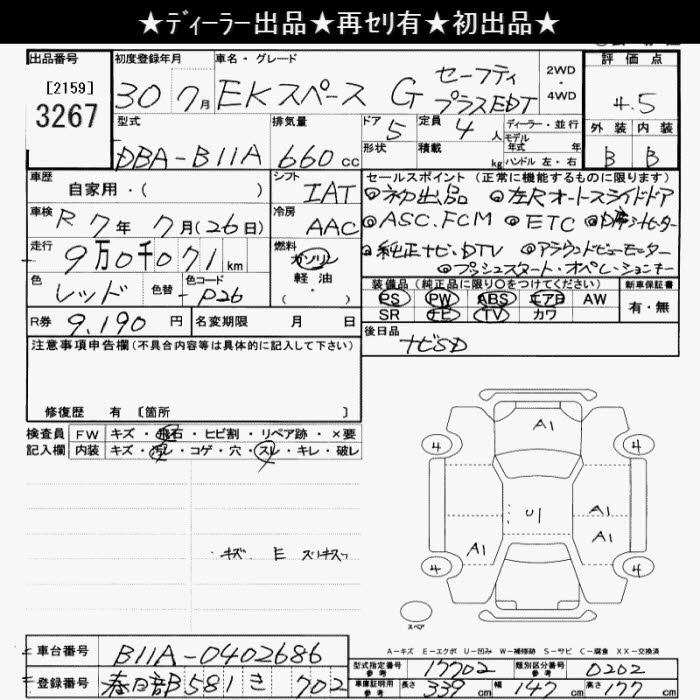 ★ディーラー出品★再セリ有★初出品★
出品番号
[2159]
3267
初度登録年月
30年7月
車名・グレード
EKスペース G セーフティ
プラスEDT
2WD・4WD
評価点
4.5
外装 内装
B B
型式
DBA-B11A
排気量
660cc
ドア 5
形状
定員 4人
積載 kg
ディーラー・並行
モデル年式 年
ハンドル 左・右
車歴
自家用・( )
シフト
IAT
車検
R7年7月(26日)
冷房
AAC
走行
9万0千071km
燃料
ガソリン
軽油
( ・ )
色
レッド
色替
色コード
P26
R券 9,190円
名変期限 月 日
セールスポイント(正常に機能するものに限ります)
◎初出品 ◎左Rオートスライドドア
◎ASC.FCM ◎ETC
◎純正ナビ・DTV ◎アラウンドビューモニター
◎プッシュスタート・オペレーションキー
装備品(純正品に限り○をつけてください)
PS PW ABS エアB AW
SR ナビ TV カワ
新車保証書
有・無
後日品
ナビSD
注意事項申告欄(不具合内容等は具体的に記入して下さい)
修復歴 有 〔箇所 〕
検査員記入欄
FW キズ・飛石・ヒビ割・リペア跡・×要
内装 キズ・汚レ・コゲ・穴・スレ・キレ・破レ
キズ E スリキズ
A1
4 4
U1
A1
A1
A1
4 4
スペア
A-キズ E-エクボ U-凹み W-補修跡 S-サビ C-腐食 XX-交換済
車台番号 B11A-0402686
登録番号 春日部581き702
型式指定番号 参考 17702
類別区分番号 参考 0202
車庫証明用 参考 長さ 339cm 幅 147cm 高さ 177cm